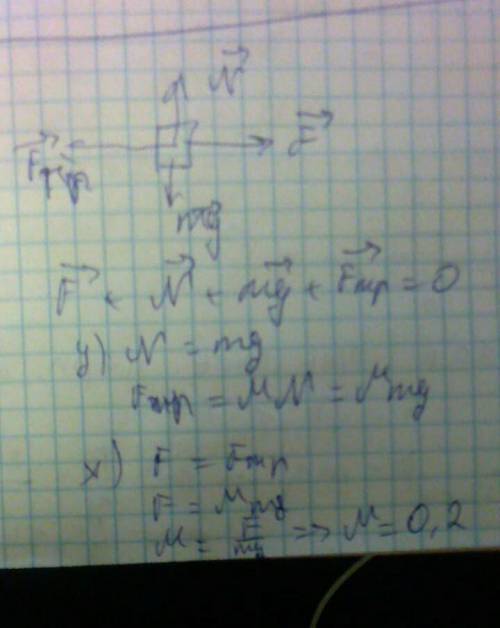 N⃗
F⃗тр F⃗
mg⃗
F⃗ + N⃗ + mg⃗ + F⃗тр = 0
y) N = mg
Fтр = μN = μmg
x) F = Fтр
F = μmg
μ = F/mg => μ = 0,2